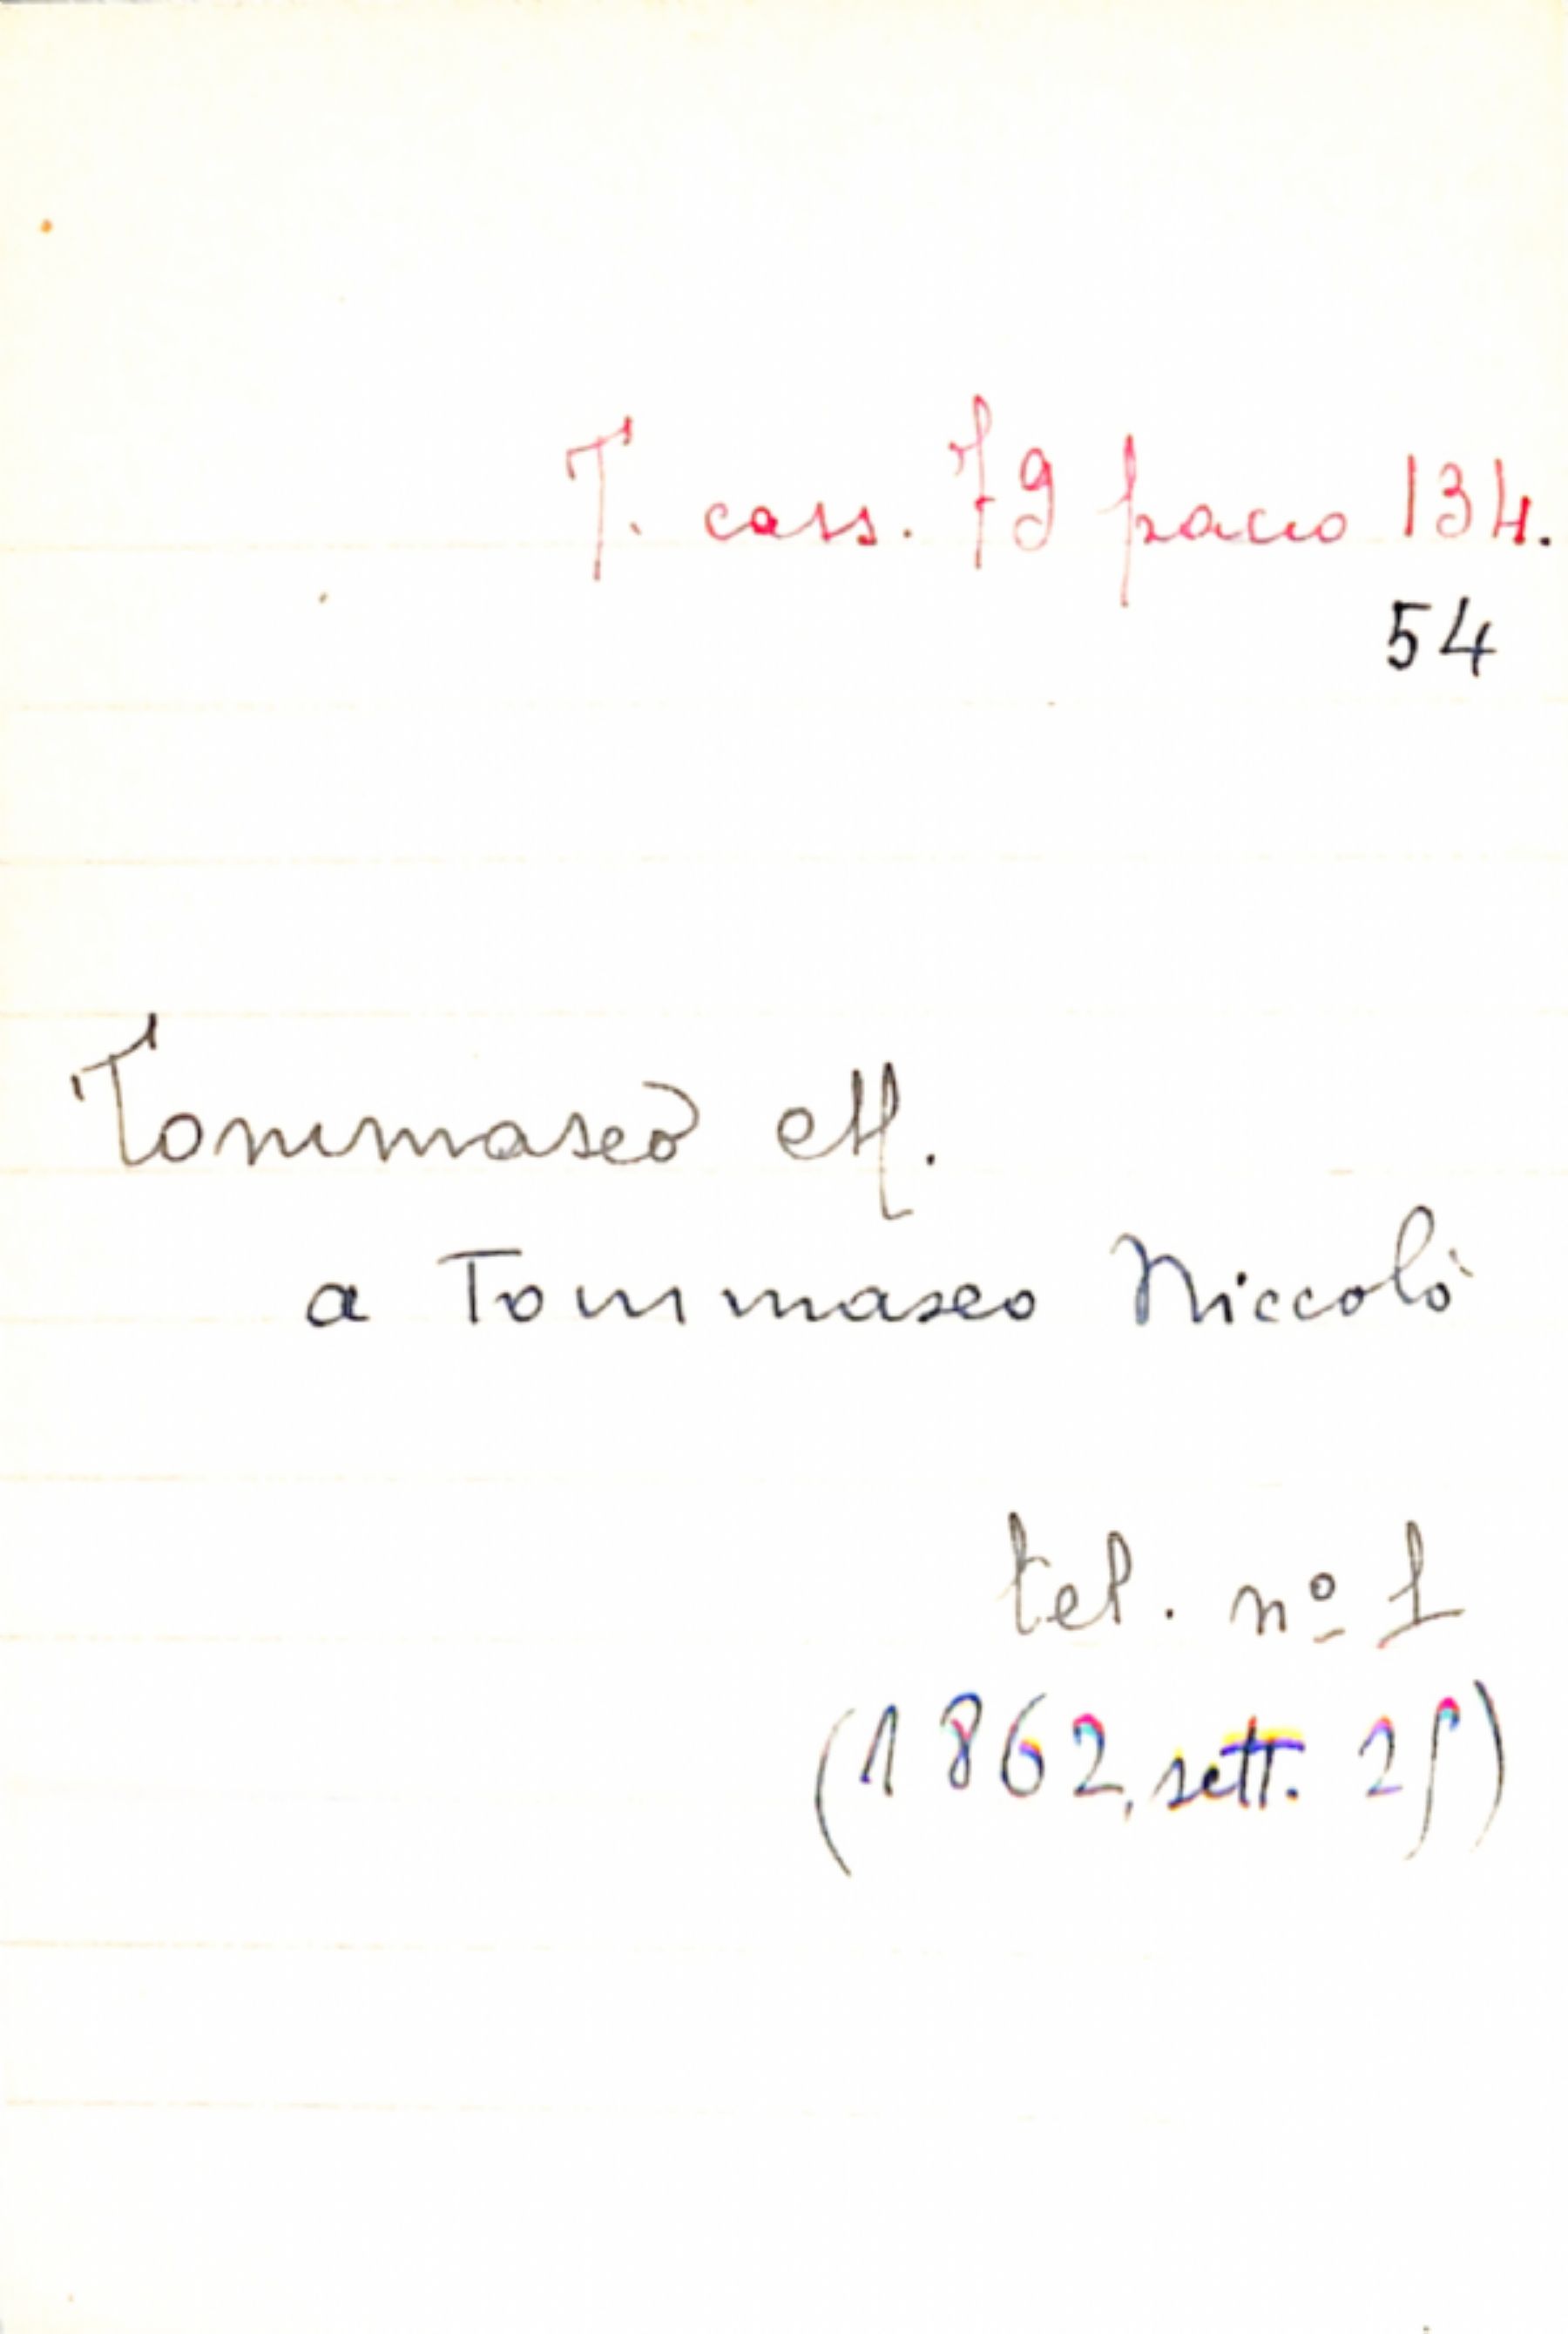 T. cass. 79 pacco 134.
54
Tommaseo M.
a Tommaseo Niccolò
tel. nº 1
(1862, sett. 25)